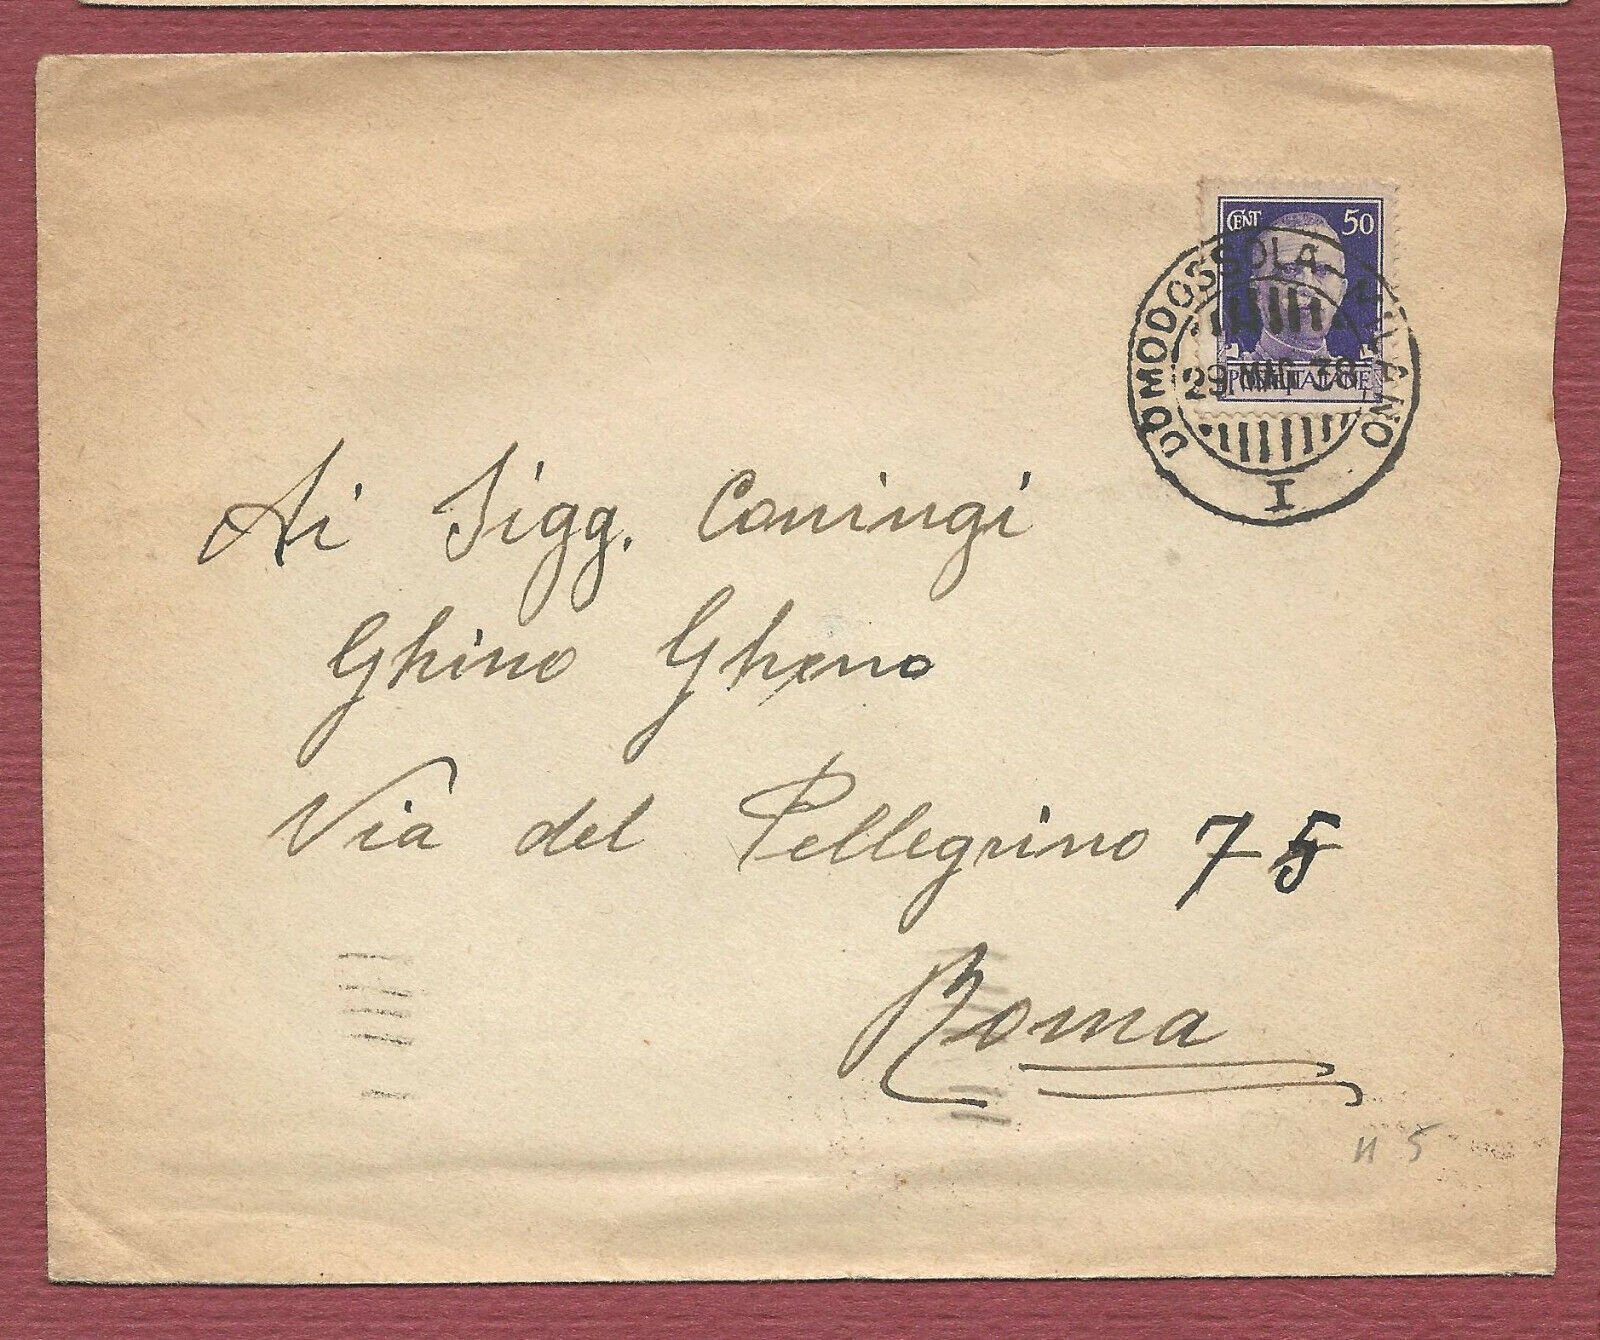 CENT 50
POSTE ITALIANE
DOMODOSSOLA - MILANO
29 MAG 38
I
Ai Sigg. Coningi
Ghino Gheno
Via del Pellegrino 75
Roma
n 5